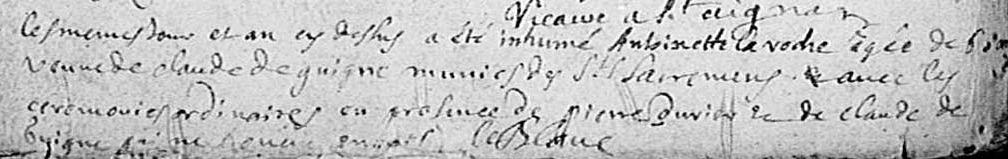 Vicaire a St aignan
les memes Jour et an cy dessus a été inhumé Antoinette la roche âgée de 6
veuve de claude de guigne munies des Sts Sacremens & avec les
ceremonies ordinaires en presence de pierre Durier & de claude de
Guigne qui ne le Blanc